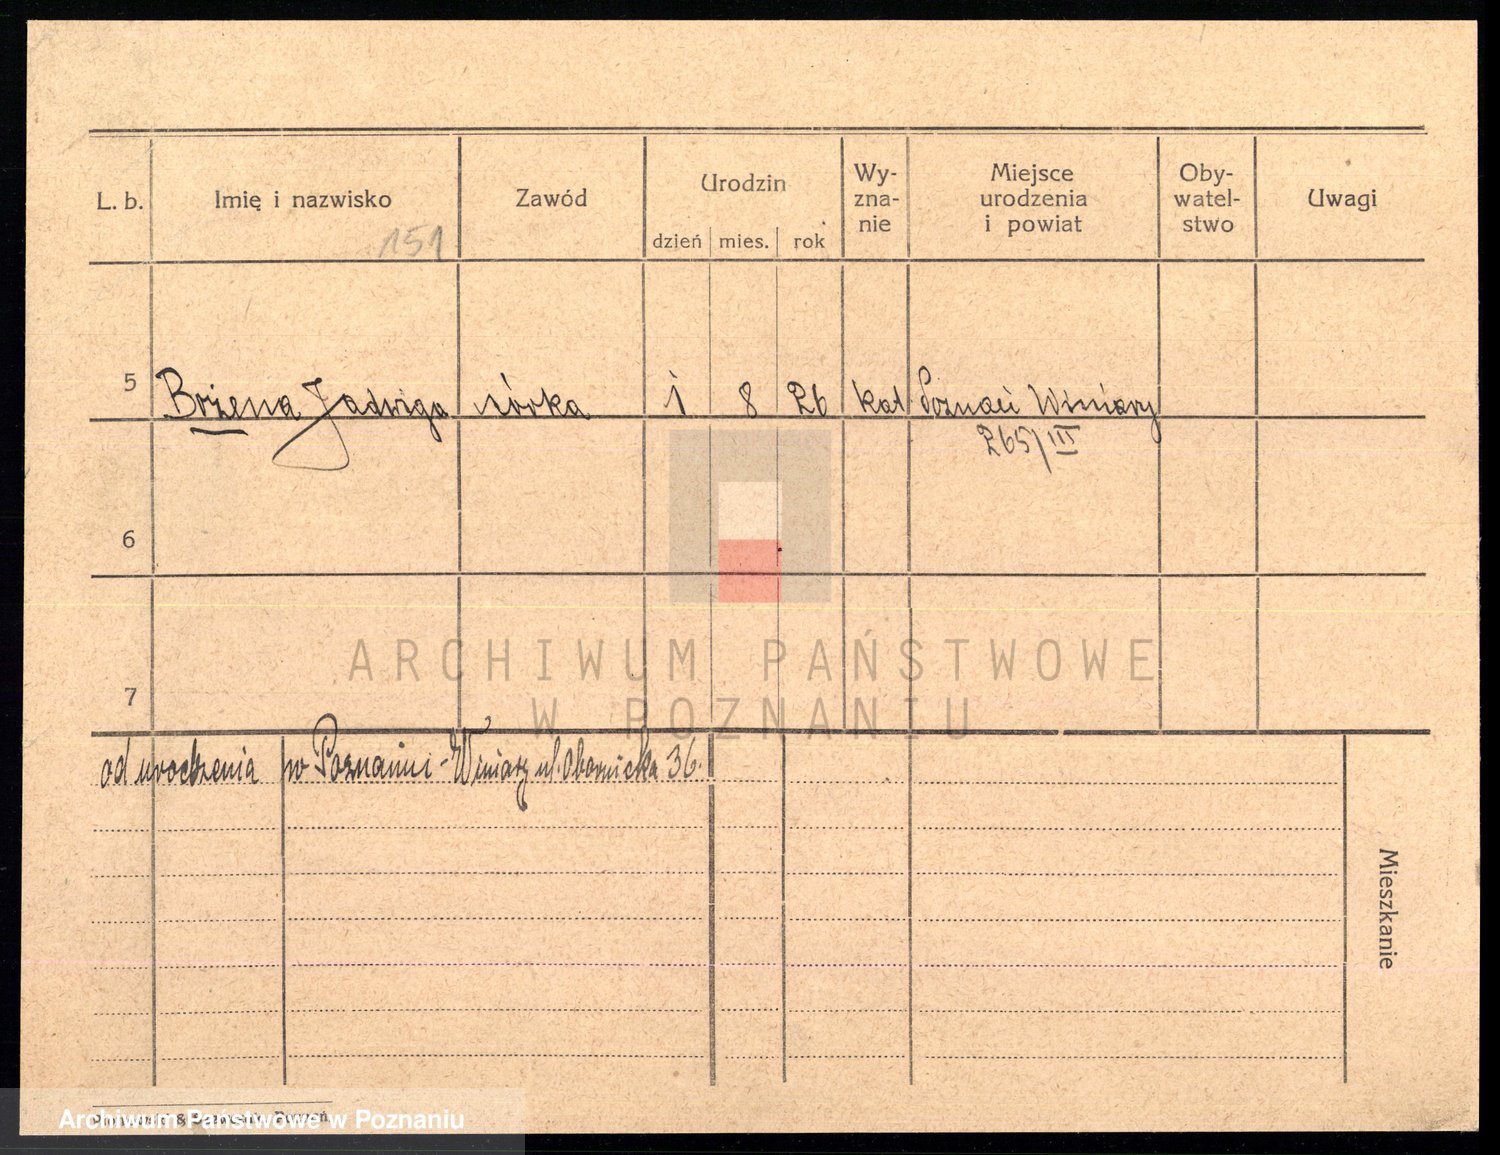 L. b. Imię i nazwisko Zawód Urodzin dzień mies. rok Wy-zna-nie Miejsce urodzenia i powiat Oby-watel-stwo Uwagi
151
5 Bożena Jadwiga córka 1 8 26 kat Poznań Winiary
265/III
6
7
ARCHIWUM PAŃSTWOWE
W POZNANIU
od urodzenia w Poznaniu - Winiary ul. Obornicka 36.
Mieszkanie
Archiwum Państwowe w Poznaniu